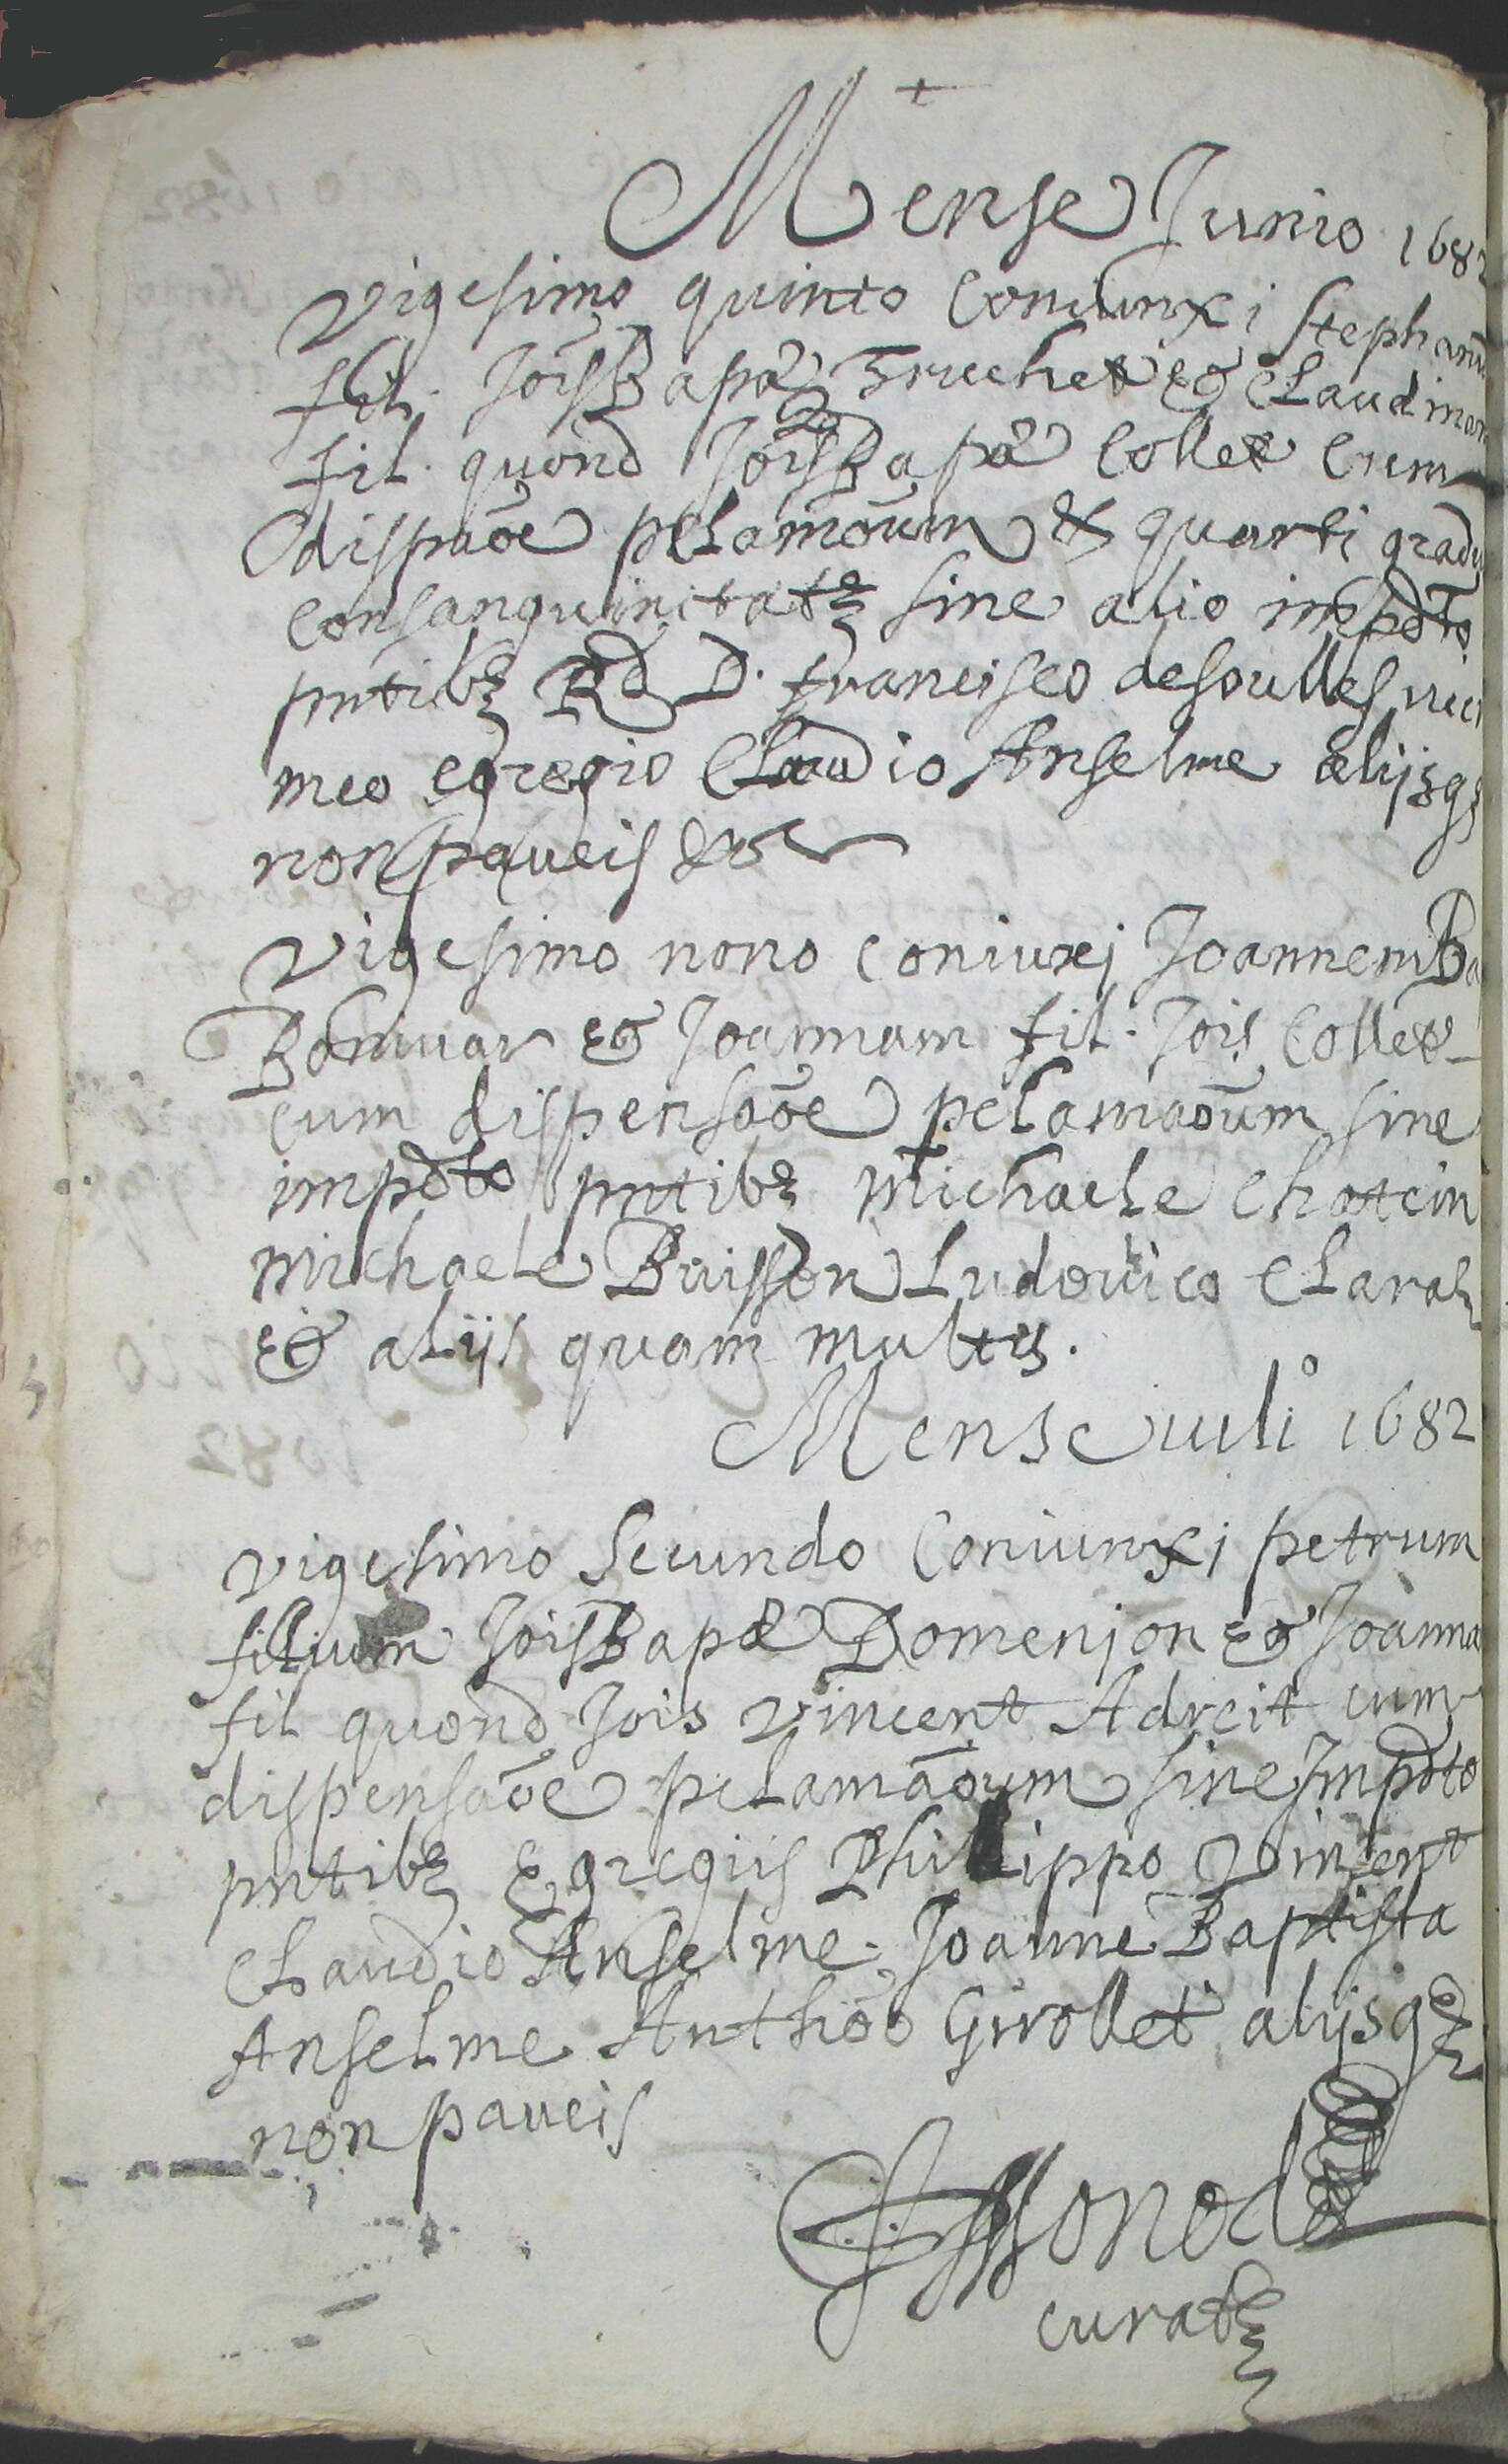 +
Mense Junio 1682
Vigesimo quinto Coniunxi Stephanū
fil. Joīs Bapæ Truchet et Claudinam
fil. quond Joīs Bapæ Collet Cum
dispnāoē pclamaōum & quarti gradu
Consanguinitatis sine alio impdto
pntibz Rd D. Francisco desoulles vic
meo egregio Claudio Anselme alijsqz
non paucis &c
Vigesimo nono Coniuxi Joannem Ba
Bonivar et Joannam fil. Jois Collet
cum dispensāoe pclamaōum sine
impdto pntibz Michaele
Michaele Buisson Ludovico Claraz
et alijs quam multis.
Mense iulio 1682
Vigesimo Secundo Coniunxi petrum
filium Joīs Bapæ Domenjon et Joanna
fil quond Jois Vincent Adreit cum
dispensāoe pclamāoum sine Impdto
pntibz Egregiis Philippo Vincent
Claudio Anselme. Joanne Baptista
Anselme Anthōo Girollet alijsqz
non paucis
curatz